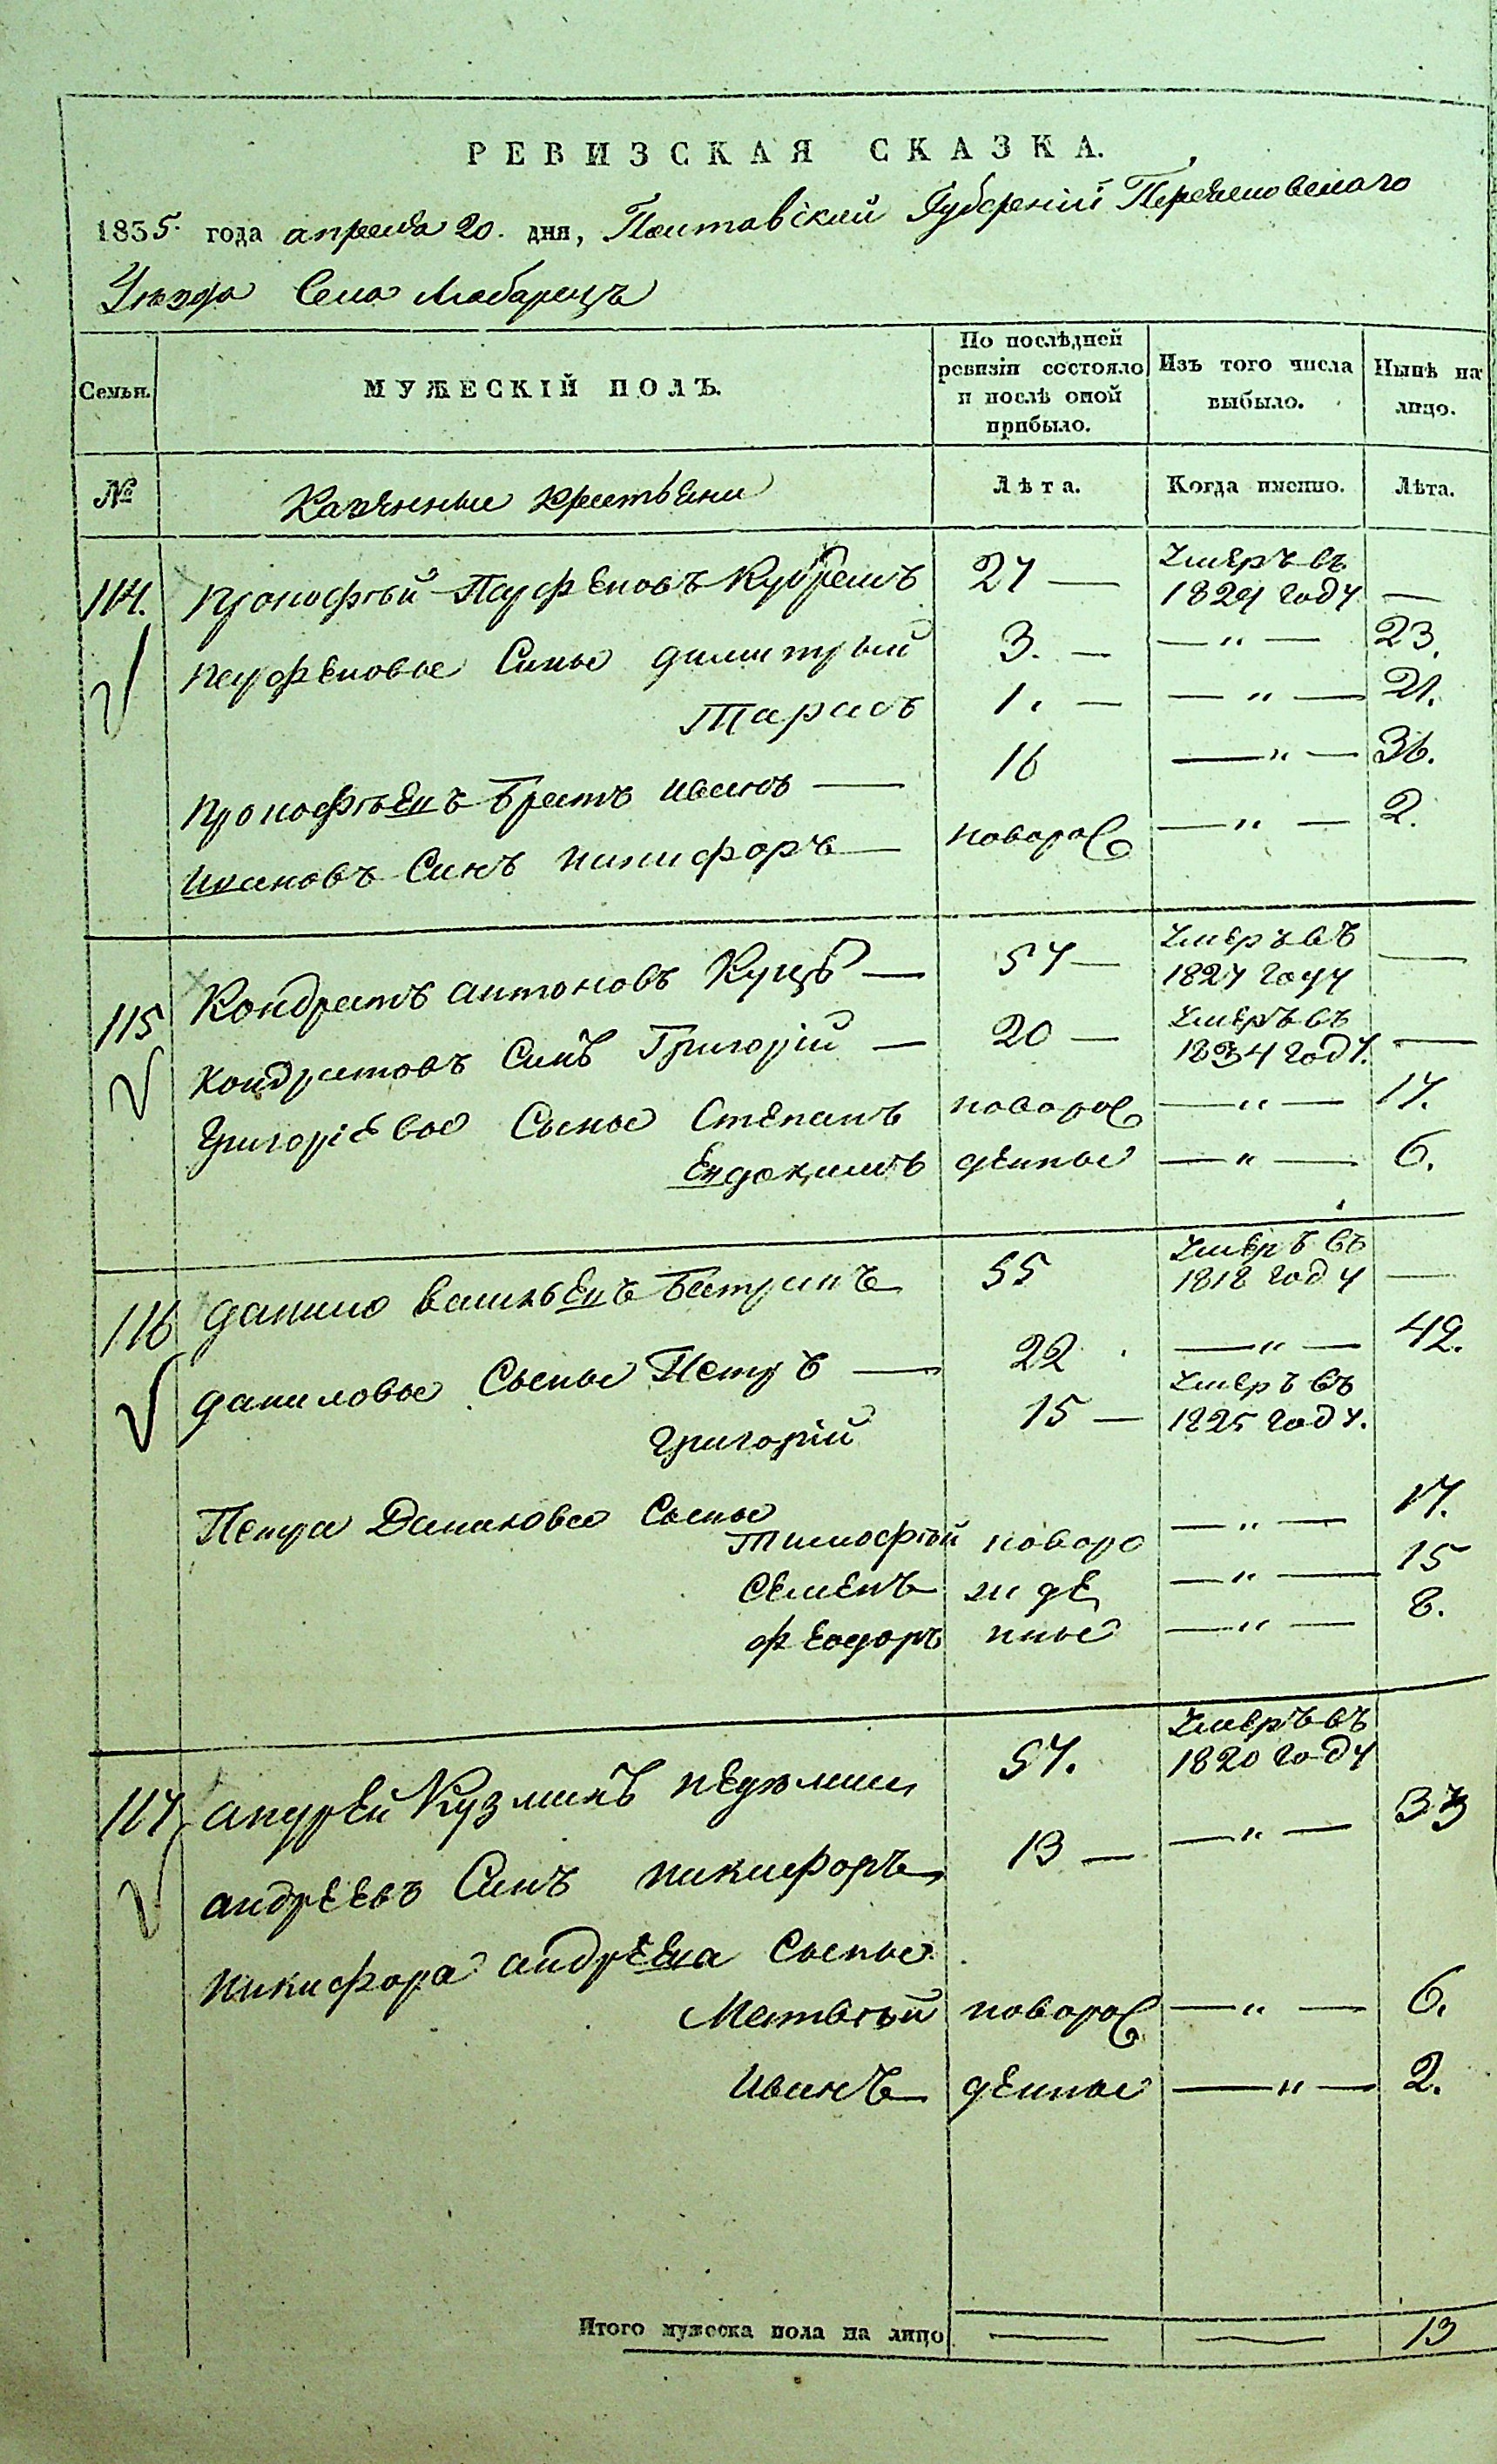 РЕВИЗСКАЯ СКАЗКА.
1835 года апреля 20. дня, Полтавской Губернии Переяславскаго
Уезда Село Любарецъ
Семьи.
МУЖЕСКІЙ ПОЛЪ.
По послѣдней
ревизіи состояло
и послѣ оной
прибыло.
Изъ того числа
выбыло.
Нынѣ на
лицо.
№
Казенные крестьяни
Лѣта.
Когда именно.
Лѣта.
114. Прокофѣй Парфеновъ 27 — Умеръ въ
1829 году —
Парфеновые Сины Димитрый 3. — — " — 23.
Тарасъ 1. — — " — 21.
Прокофѣевъ Братъ Иванъ — 16 — " — 36.
Ивановъ Синъ Никифоръ — новорос — " — 2.
115 Кондратъ Антоновъ Куцъ — 57 — Умеръ въ —
1827 году
Кондратовъ Синъ Григорій — 20 — Умеръ въ
1834 году. —
Григоріевые Сыны Степанъ новорос — " — 17.
Евдокимъ денные — " — 6.
116 Данило Васильевъ 55 Умеръ въ
1818 году —
Даниловые Сыны Петръ — 22 — " — 42.
Григорій 15 — Умеръ въ
1825 году.
Петра Данилова Сыны
Тимофѣй новоро — " — 17.
Семенъ жде — " — 15
Феодоръ нные — " — 8.
117 Андрей Кузминъ 57. Умеръ въ
1820 году
Андреевъ Синъ Никифоръ 13 — — " — 33
Никифора Андреева Сыны
Матвѣй новорос — " — 6.
Иванъ денные — " — 2.
Итого мужеска пола на лицо — — 13